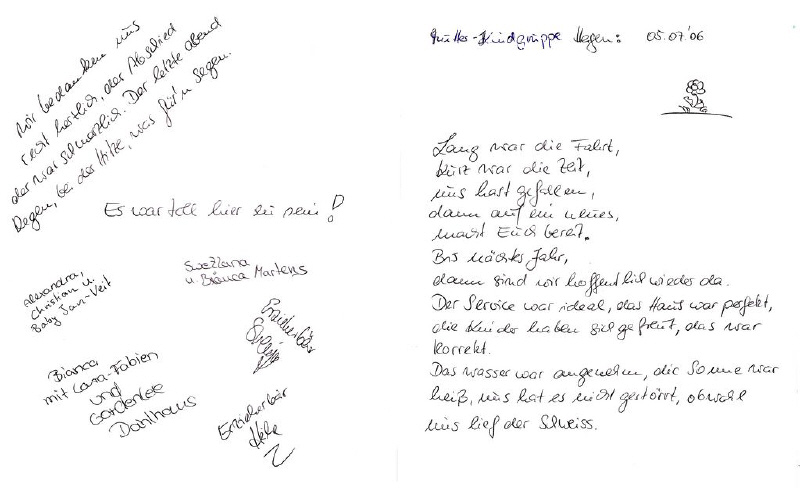 Wir bedanken uns
recht herzlich, der Abschied
der war schmerzlich. Der letzte Abend
Regen, bei der Hitze, was für'n Segen.
Es war toll hier zu sein!
Alexandra,
Christian u.
Baby Jan-Veit
Svetlana
u. Bianca Martens
Bianca
mit Lara-Fabien
und
Gordenlee
Dahlhaus
Erzieherbär
Mutter-Kindgruppe Hagen: 05.07.'06
Lang war die Fahrt,
kurz war die Zeit,
uns hast gefallen,
dann auf ein neues,
macht Euch bereit.
Bis nächstes Jahr,
dann sind wir hoffentlich wieder da.
Der Service war ideal, das Haus war perfekt,
die Kinder haben sich gefreut, das war
korrekt.
Das Wasser war angenehm, die Sonne war
heiß, uns hat es nicht gestörrt, obwohl
uns lief der Schweiss.